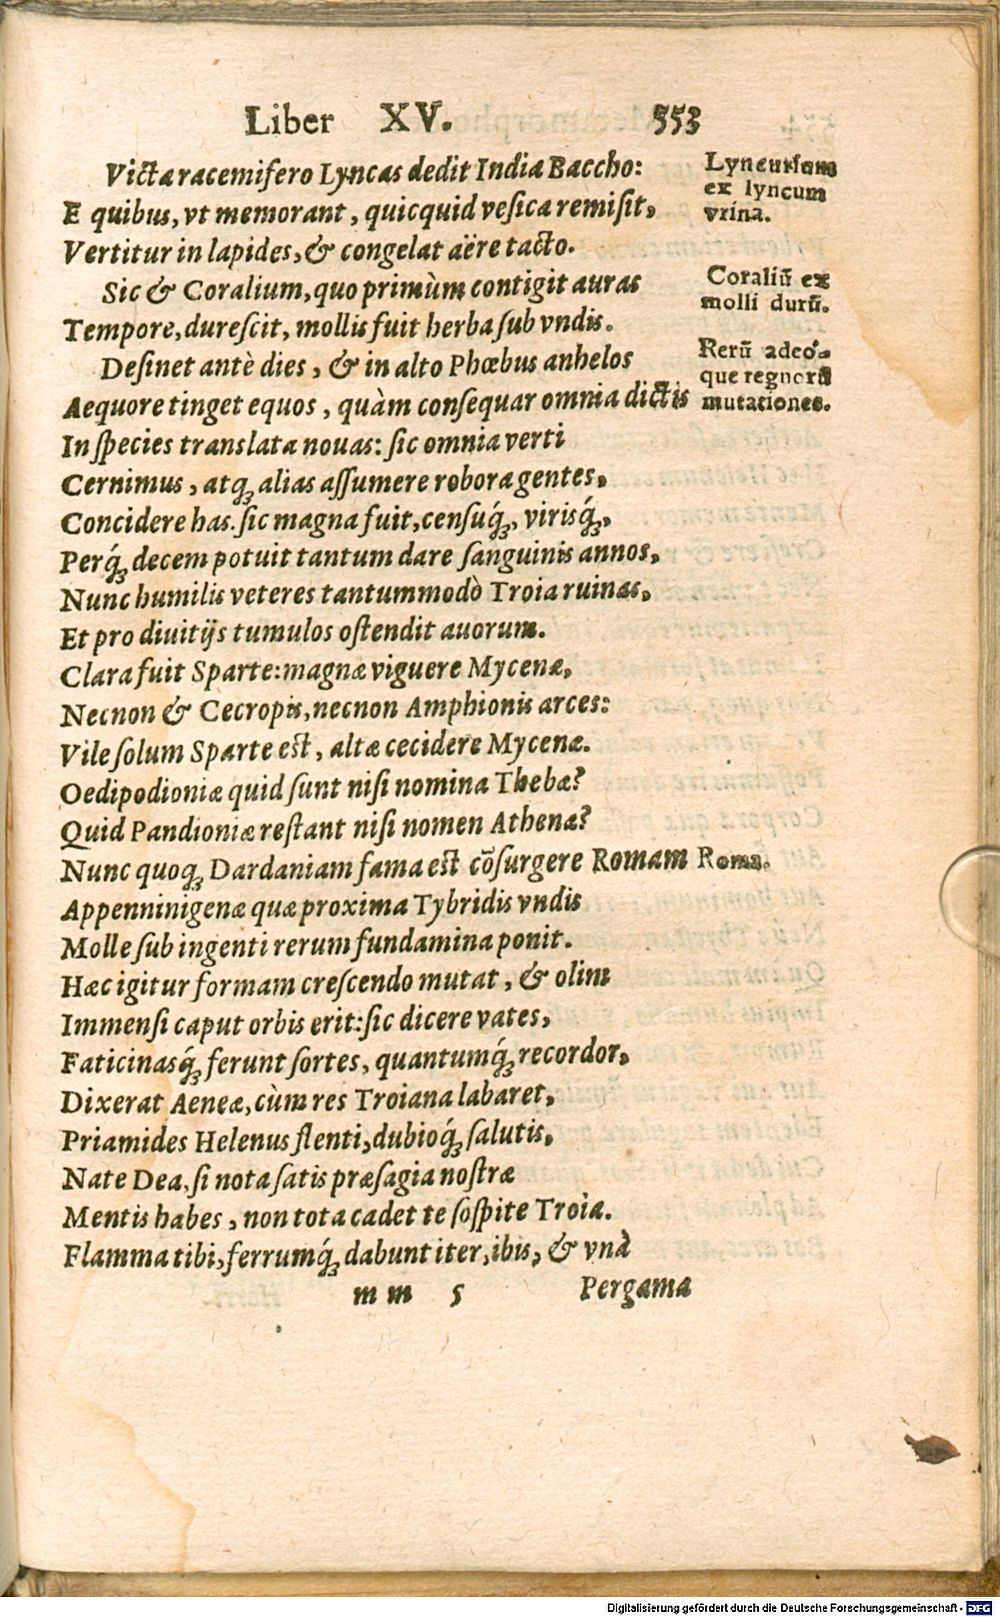 Liber XV. 553
Victa racemifero Lyncas dedit India Baccho:
E quibus, vt memorant, quicquid veſica remiſit,
Vertitur in lapides, & congelat aëre tacto.
Sic & Coralium, quo primùm contigit auras
Tempore, dureſcit, mollis fuit herba ſub vndis.
Deſinet antè dies, & in alto Phœbus anhelos
Aequore tinget equos, quàm conſequar omnia dictis
In ſpecies translata nouas: ſic omnia verti
Cernimus, atq; alias aſſumere robora gentes,
Concidere has. ſic magna fuit, cenſuq́;, virisq́;,
Perq́; decem potuit tantum dare ſanguinis annos,
Nunc humilis veteres tantummodò Troia ruinas,
Et pro diuitijs tumulos oſtendit auorum.
Clara fuit Sparte: magnæ viguere Mycenæ,
Necnon & Cecropis, necnon Amphionis arces:
Vile ſolum Sparte eſt, altæ cecidere Mycenæ.
Oedipodioniæ quid ſunt niſi nomina Thebæ?
Quid Pandioniæ reſtant niſi nomen Athenæ?
Nunc quoq; Dardaniam fama eſt cõſurgere Romam Roma.
Appenninigenæ quæ proxima Tybridis vndis
Molle ſub ingenti rerum fundamina ponit.
Hæc igitur formam creſcendo mutat, & olim
Immenſi caput orbis erit: ſic dicere vates,
Faticinasq́; ferunt ſortes, quantumq́; recordor,
Dixerat Aeneæ, cùm res Troiana labaret,
Priamides Helenus flenti, dubioq́; ſalutis,
Nate Dea, ſi nota ſatis præſagia noſtræ
Mentis habes, non tota cadet te ſoſpite Troia.
Flamma tibi, ferrumq́; dabunt iter, ibis, & vnà
m m 5 Pergama
Lyncurium
ex lyncum
vrina.
Coraliũ ex
molli durũ.
Rerũ adeó-
que regnorũ
mutationes.
Digitalisierung gefördert durch die Deutsche Forschungsgemeinschaft - DFG